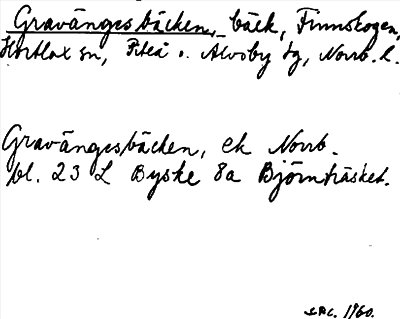 Gravängesbäcken, bäck, Finnskogen,
Hortlax sn, Piteå o. Älvsby tg, Norrb. l.
Gravängesbäcken, ek Norrb.
bl. 23 L Byske 8a Björnträsket.
1960.